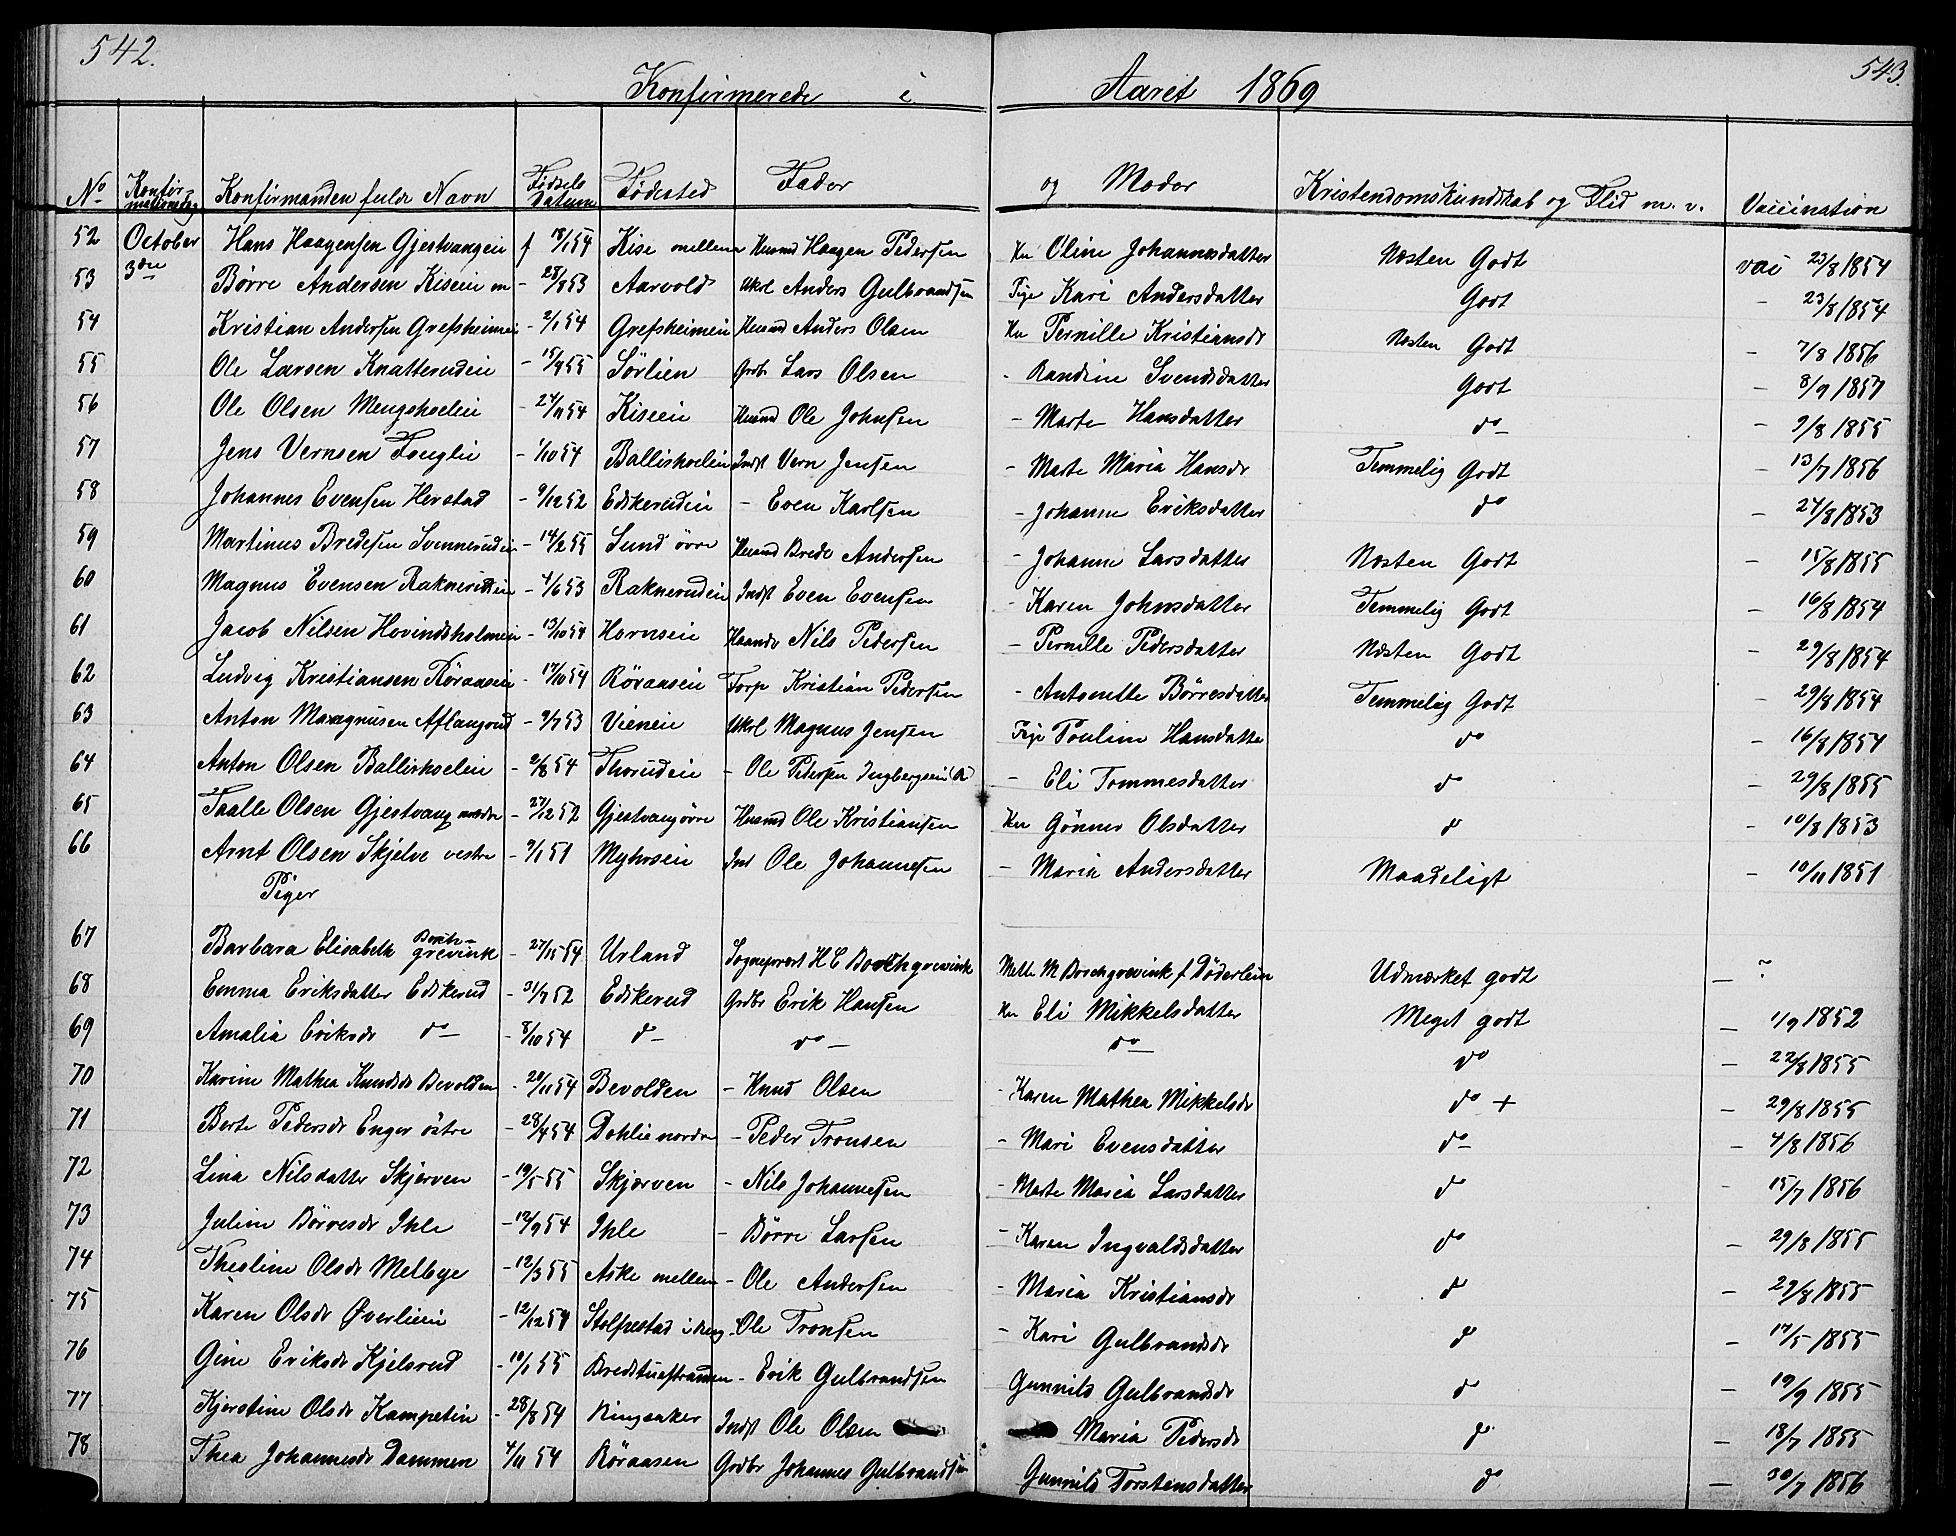 542.
543.
Konfirmerede i Aaret 1869
No Konfirmationsdag Konfirmanden fulde Navn Fødsels Datum Fødested Fader og Moder Kristendomskundskab og Flid m. v. Vaccination
52 October 3die Hans Haagensen Gjestvangeie f 18/1 54 Kise mellem Husmd Haagen Pedersen Ku Oline Johannesdatter Næsten Godt vac 23/8 1854
53 Børre Andersen Kiseie m - 28/8 53 Aarvold Ukrl Anders Gulbrandsen Pige Kari Andersdatter Godt - 23/8 1854
54 Kristian Andersen Grefsheimeie - 2/1 54 Grefsheimeie Husmd Anders Olsen Ku Pernille Kristiansdr Næsten Godt - 7/8 1856
55 Ole Larsen Knatterudeie - 15/4 55 Sørlien Grdbr Lars Olsen - Randine Svendsdatter Godt - 8/9 1857
56 Ole Olsen Mengshoeleie - 24/11 54 Kiseeie Husmd Ole Johnsen - Marte Hansdatter do - 9/8 1855
57 Jens Vernsen Fouglie - 1/10 54 Ballishoeleie Indst Vern Jensen - Marte Maria Hansdr Temmelig Godt - 13/7 1856
58 Johannes Evensen Herstad - 9/12 52 Edskerudeie - Even Karlsen - Johanne Eriksdatter do - 24/8 1853
59 Martinus Bredesen Svennerudeie - 14/2 55 Sund övre Husmd Brede Andersen - Johanne Larsdatter Næsten Godt - 15/8 1855
60 Magnus Evensen Raknerudeie - 4/6 53 Raknerudeie Indst Even Evensen - Karen Johnsdatter Temmelig Godt - 16/8 1854
61 Jacob Nilsen Hovindsholmeie - 13/10 54 Hornseie Haandv Nils Pedersen - Pernille Pedersdatter Næsten Godt - 29/8 1854
62 Ludvig Kristiansen Röraaseie - 17/10 54 Röraaseie Torp Kristian Pedersen - Antonette Börresdatter Temmelig Godt - 29/8 1854
63 Anton Magnusen Aflangrud - 9/7 53 Vieneie Ukrl Magnus Jensen Pige Pouline Hansdatter do - 16/8 1854
64 Anton Olsen Ballishoeleie - 2/8 54 Thorudeie - Ole Pedersen Ingbergseie - Eli Tommesdatter do - 29/8 1855
65 Taalle Olsen Gjestvang nordre - 27/12 52 Gjestvang övre Husmd Ole Kristiansen Ku Gönner Olsdatter do - 10/8 1853
66 Arnt Olsen Skjelve vestre - 9/1 51 Myhrseie Ind Ole Johannesen - Maria Andersdatter Maadeligt - 10/11 1851
Piger
67 Barbara Elisabeth Borchgrevink - 27/11 54 Urland Sogneprest H C Borchgrevink Mette M Borchgrevink f Döderlein Udmærket godt - ?
68 Emma Eriksdatter Edskerud - 31/7 52 Edskerud Grdbr Erik Hansen Ku Eli Mikkelsdatter Meget godt - 1/9 1852
69 Amalia Eriksdr do - 8/10 54 do - do - do - do - 22/8 1855
70 Karine Mathea Knudsdr Bevolden - 20/11 54 Bevolden - Knud Olsen - Karen Mathea Mikkelsdr do + - 29/8 1855
71 Berte Pedersdr Enger östre - 28/4 54 Dohlie nordre - Peder Tronsen - Mari Evensdatter do - 4/8 1856
72 Lina Nilsdatter Skjerven - 19/5 55 Skjærven - Nils Johannesen - Marte Maria Larsdatter do - 15/7 1856
73 Juline Börresdr Ihle - 12/9 54 Ihle - Börre Larsen - Karen Ingvaldsdatter do - 29/8 1855
74 Theoline Olsdr Melbye - 12/3 55 Aske mellem - Ole Andersen - Maria Kristiansdr do - 29/8 1855
75 Karen Olsdr Øverlieie - 12/12 54 Stolpestad i Ring - Ole Tronsen - Kari Gulbrandsdr do - 17/5 1855
76 Gine Eriksdr Kjelsrud - 10/1 55 Bredstuestranden - Erik Gulbrandsen Gunnild Gulbrandsdr do - 19/9 1855
77 Kjerstine Olsdr Kampetin - 28/8 54 Ringsaker Indst Ole Olsen Maria Pedersdr do - 18/7 1855
78 Thea Johannesdr Dammen 4/11 54 Röraasen Grdbr Johannes Gulbrandsen Gunnild Torstensdatter do - 30/7 1856